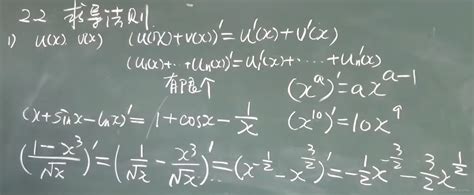 2.2 求导法则
1) u(x) v(x) (u(x)+v(x))′=u′(x)+v′(x)
(u₁(x)+…+uₙ(x))′=u₁′(x)+…+uₙ′(x)
有限个 (xᵃ)′=axᵃ⁻¹
(x+sinx−lnx)′=1+cosx−1/x (x¹⁰)′=10x⁹
((1−x³)/√x)′=(1/√x−x³/√x)′=(x^(-1/2)−x^(3/2))′=−1/2x^(-3/2)−3/2x^(1/2)